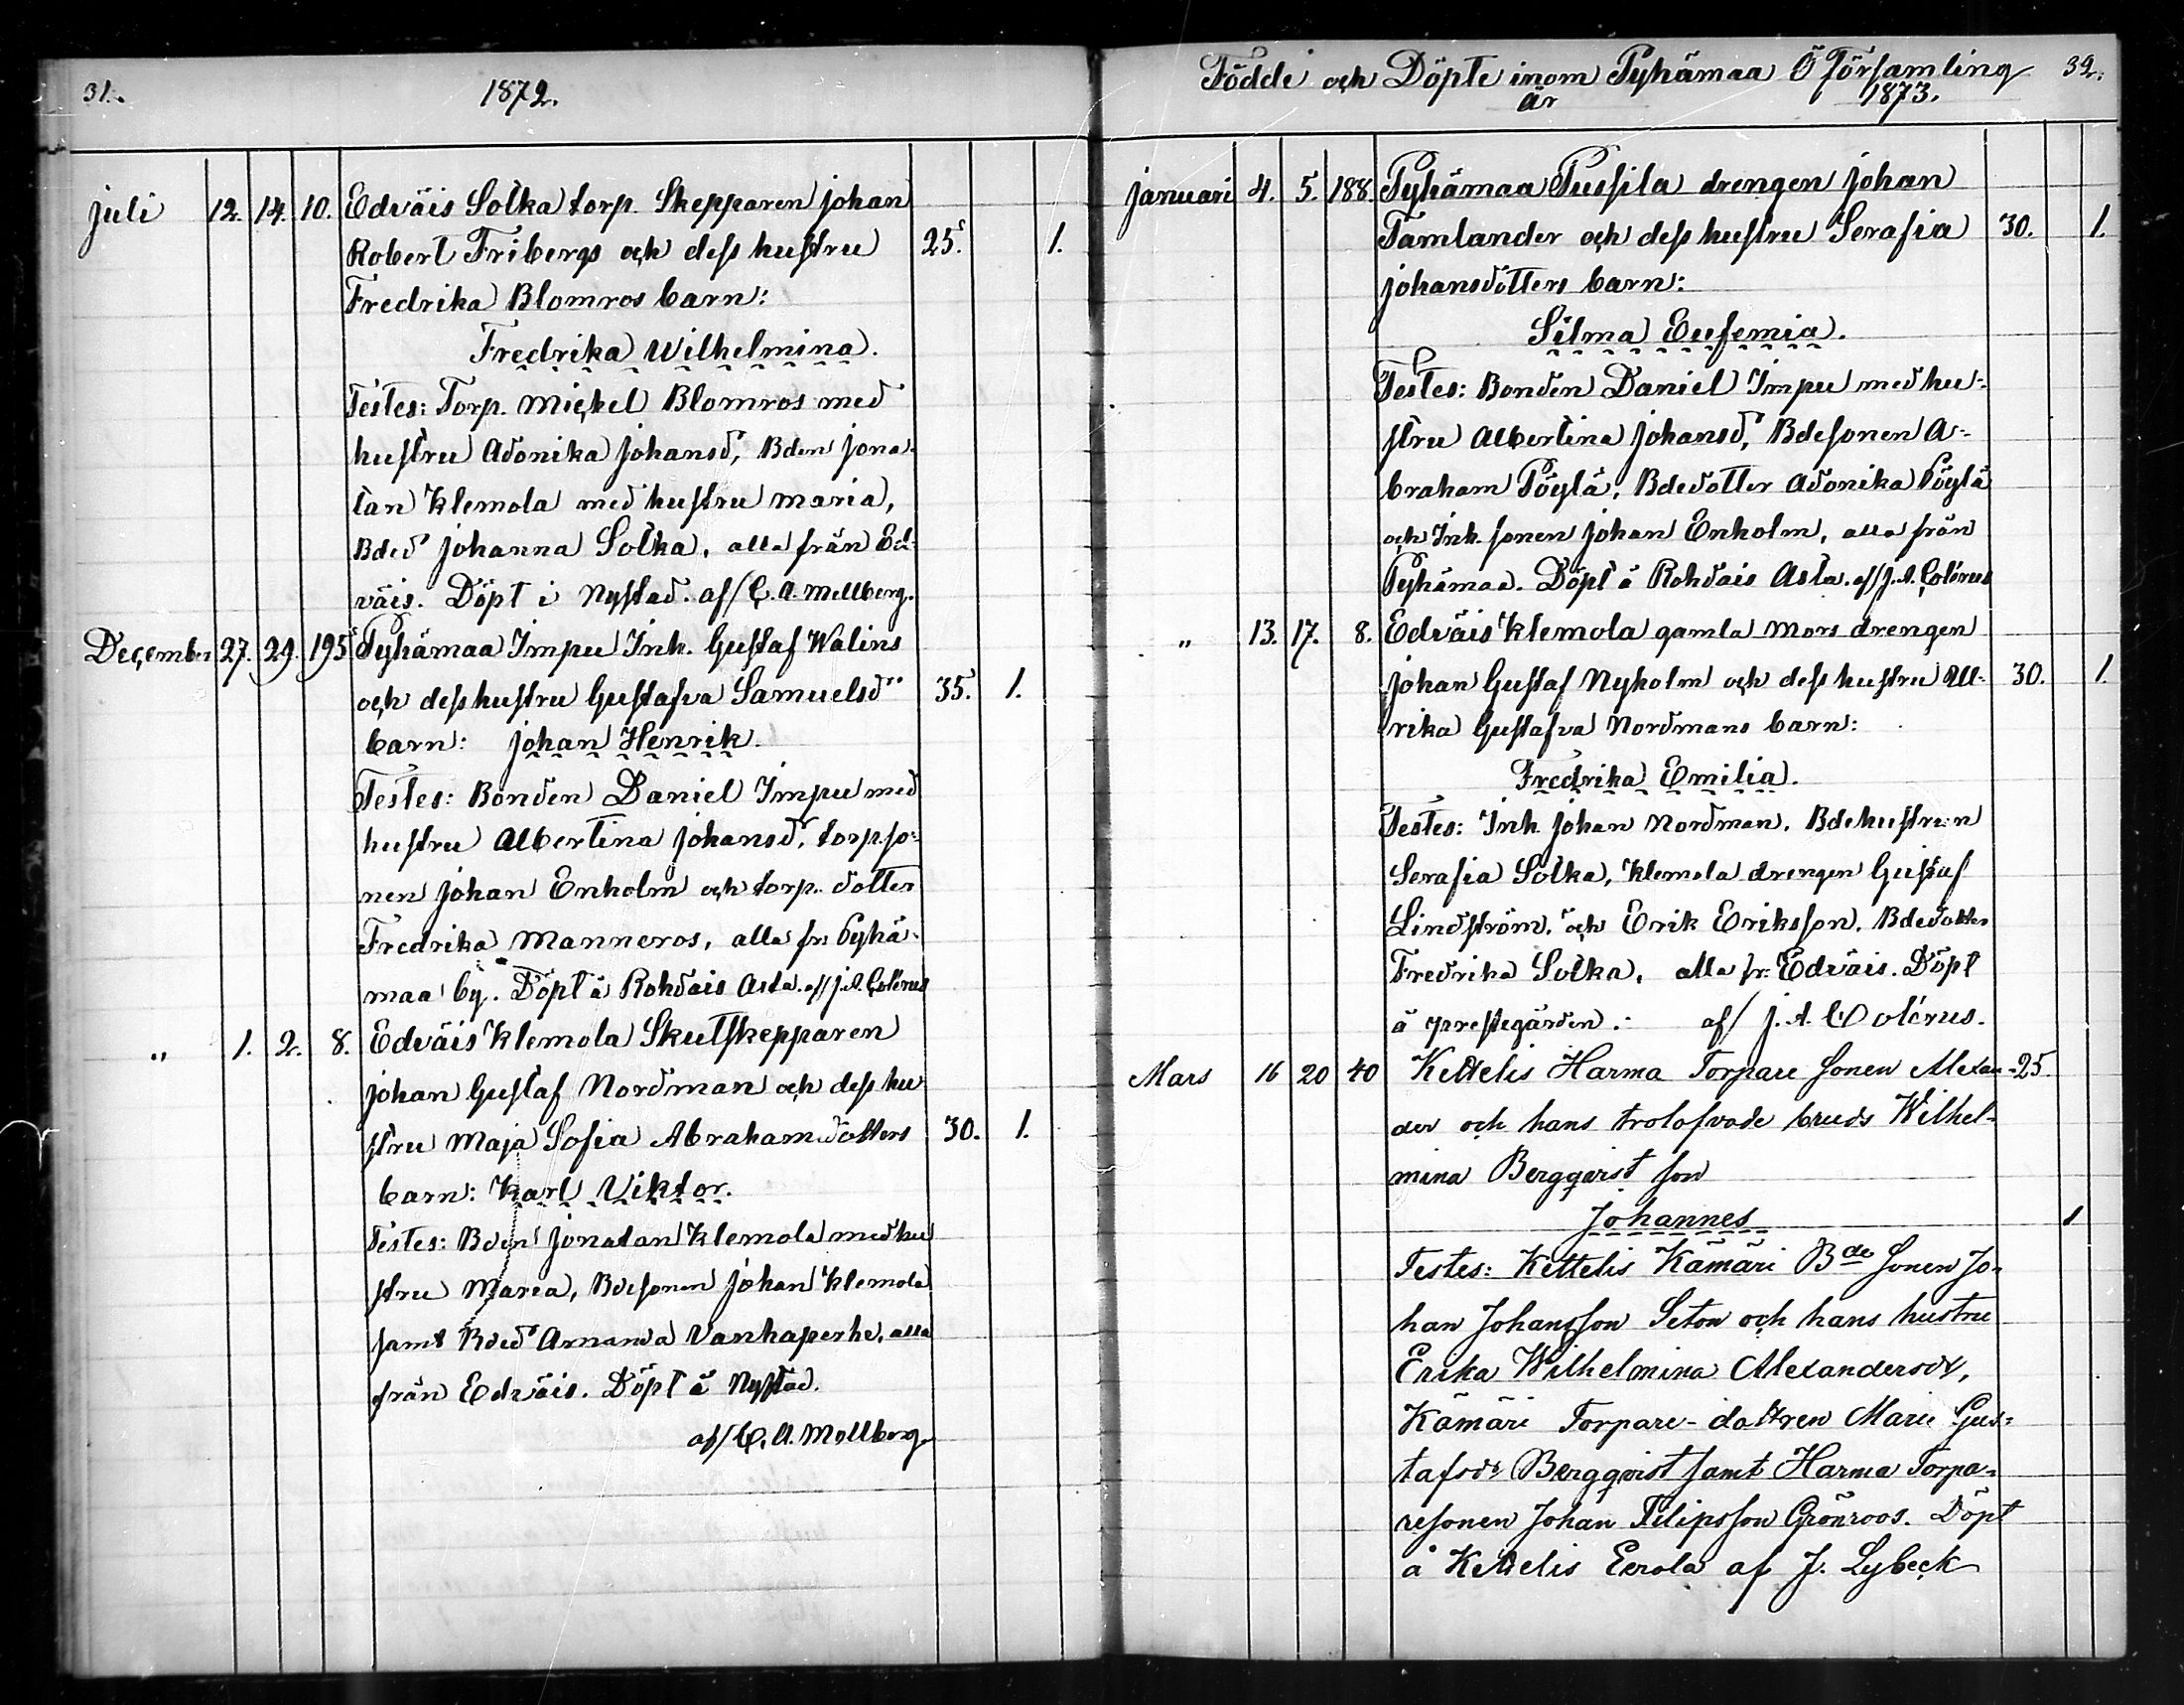 31.
1872.
juli 12. 14. 10. Edväis Solka torp. Skepparen johan
Robert Fribergs och dess hustru 25. 1.
Fredrika Blomros barn:
Fredrika Wilhelmina.
Testes: Torp. Mickel Blomros med
hustru Adonika johansd, Bden jona-
tan Klemola med hustru Maria,
Bded johanna Solka, alla från Ed-
väis. Döpt i Nystad. af/ C. A. Mellberg.
December 27. 29. 195 Pyhämaa Impu Inh. Gustaf Walins
och dess hustru Gustafva Samuelsd 35. 1.
barn: johan Henrik.
Testes: Bonden Daniel Impu med
hustru Albertina johansd, torp.so-
nen johan Enholm och torp. dotter
Fredrika Manneros, alla fr. Pyhä-
maa by. Döpt å Rohdais Asta. af/ J. A. Colérus
„ 1. 2. 8. Edväis Klemola Skutskepparen
johan Gustaf Nordman och dess hu
stru Maja Sofia Abrahamsdotters 30. 1.
barn: Karl Viktor.
Testes: Bden jonatan Klemola med hu
stru Maria, Bdesonen johan Klemola
samt Bded Amanda Vanhaperhe, alla
från Edväis. Döpt å Nystad.
af/ C. A. Mellberg.
Födde och Döpte inom Pyhämaa Ö Församling 32.
år 1873.
januari 4. 5. 188. Pyhämaa Pussila drengen johan
Tamlander och dess hustru Serafia 30. 1.
johansdotters barn:
Silma Eufemia.
Testes: Bonden Daniel Impu med hu-
stru Albertina johansd, Bdesonen A-
braham Pöylä, Bdedotter Adonika Pöylä
och Inh. sonen johan Enholm, alla från
Pyhämaa. Döpt å Rohdais Asta. af/ J. A. Colérus
„ 13. 17. 8. Edväis Klemola gamla Mors drengen
johan Gustaf Nyholm och dess hustru Ul- 30. 1.
rika Gustafva Nordmans barn:
Fredrika Emilia.
Testes: Inh. johan Nordman, Bdehustrun
Serafia Solka, Klemola drengen Gustaf
Lindström, och Erik Eriksson, Bdedotter
Fredrika Solka, alla fr. Edväis. Döpt
å prestegården. af/ J. A. Colérus.
Mars 16 20 40 Kettelis Harma Torpare sonen Alexan- 25
der och hans trolofvade bruds Wilhel-
mina Bergqvist son
Johannes 1
Testes: Kettelis Kämäri Bde sonen Jo-
han Johansson Seton och hans hustru
Erika Wilhelmina Alexandersdr,
Kämäri Torpare-dottren Marie Gus-
tafsdr Bergqvist samt Harma Torpa-
resonen Johan Filipsson Grönroos. Döpt
å Kettelis Eerola af J. Lybeck